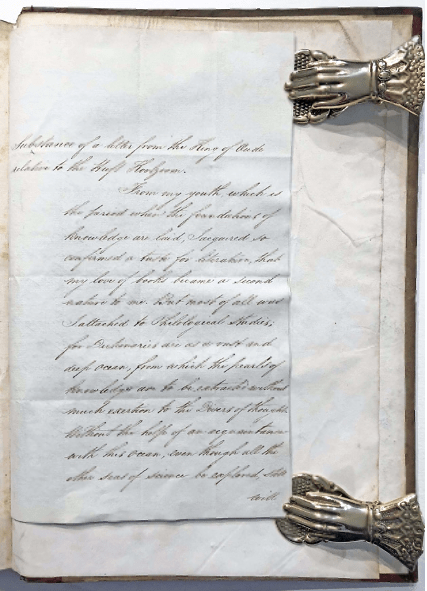 Substance of a letter from the King of Oude
relative to the Huft Koolzoom.
From my youth which is
the period when the foundations of
knowledge are laid, I acquired so
confirmed a taste for literature, that
my love of books became a second
nature to me. But most of all was
I attached to Philological studies,
for Dictionaries are as a vast and
deep ocean, from which the pearls of
knowledge are to be extracted without
much exertion to the Divers of thought.
Without the help of an acquaintance
with this Ocean, even though all the
other seas of science be explored
will